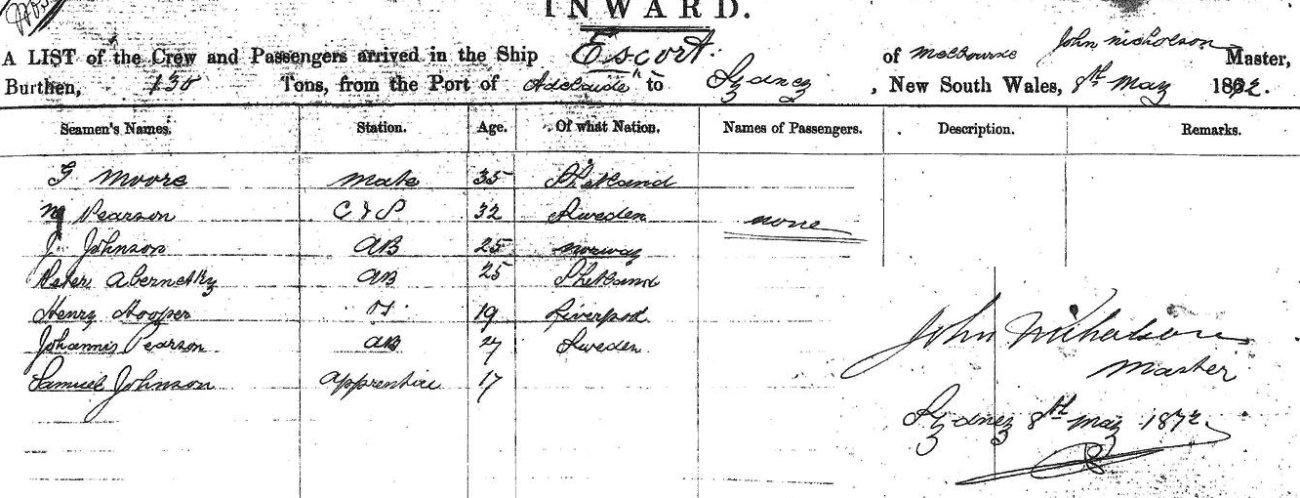 INWARD.
A LIST of the Crew and Passengers arrived in the Ship Escort of Melbourne John Nicholson Master,
Burthen, 130 Tons, from the Port of Adelaide to Sydney, New South Wales, 8th May 1872.
Seamen's Names. Station. Age. Of what Nation. Names of Passengers. Description. Remarks.
G Moore Mate 35 Shetland
Pearson C & S 32 Sweden none
J. Johnson AB 25 Norway
Peter Abernethy AB 25 Shetland
Henry Hooper 19 Liverpool
Johannis Pearson AB 27 Sweden
Samuel Johnson Apprentice 17
John Nicholson
Master
Sydney 8th May 1872.